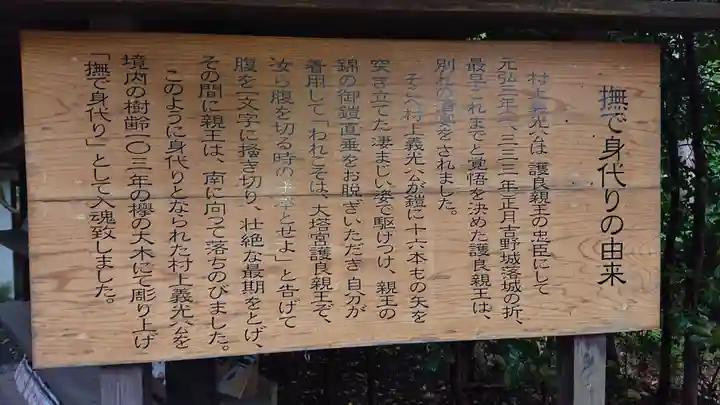 撫で身代りの由来
村上義光公は護良親王の忠臣にして
元弘三年(一、三三三年)正月吉野城落城の折、
最早これまでと覚悟を決めた護良親王は、
別れの酒宴をされました。
そこへ村上義光公が鎧に十六本もの矢を
突き立てた凄まじい姿で駆けつけ、親王の
錦の御鎧直垂をお脱ぎいただき自分が
着用して「われこそは、大塔宮護良親王ぞ、
汝ら腹を切る時の手本とせよ」と告げて
腹を一文字に掻き切り、壮絶な最期をとげ、
その間に親王は、南に向って落ちのびました。
このように身代りとなられた村上義光公を
境内の樹齢一〇三年の欅の大木にて彫り上げ
「撫で身代り」として入魂致しました。